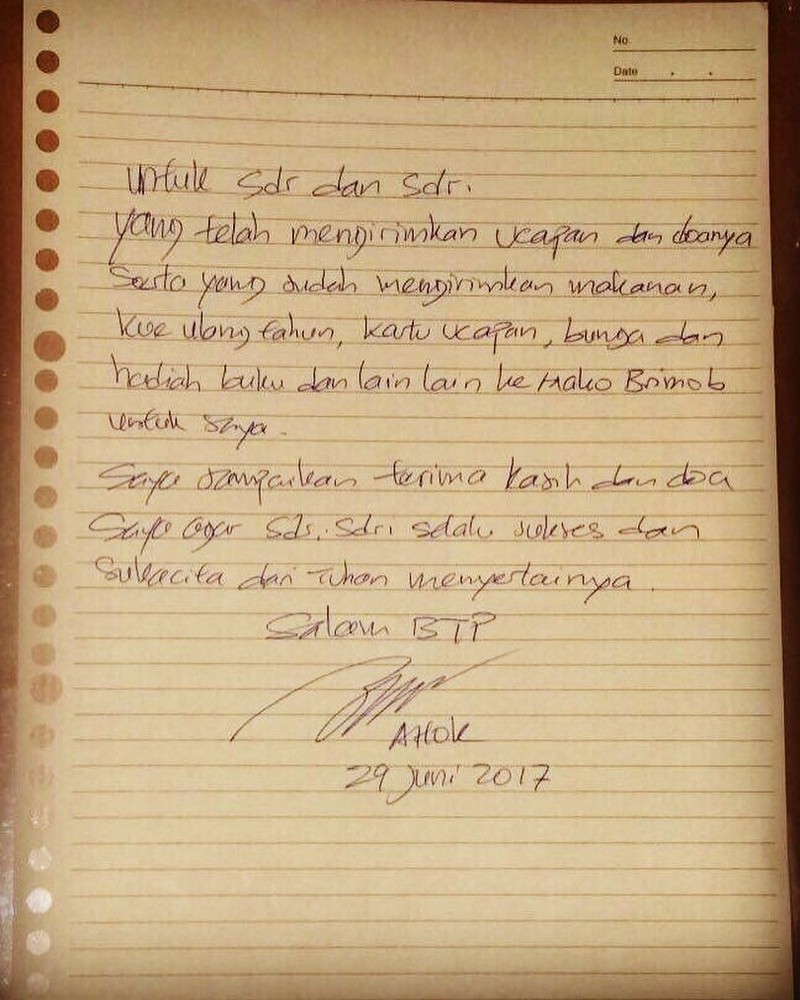 No
Date . .
untuk Sdr dan Sdri.
yang telah mengirimkan ucapan dan doanya
Serta yang sudah mengirimkan makanan,
kue ulang tahun, kartu ucapan, bunga dan
hadiah buku dan lain lain ke Mako Brimob
untuk saya.
Saya sampaikan terima kasih dan doa
Saya agar Sdr. Sdri selalu sukses dan
Sukacita dari Tuhan menyertainya.
Salam BTP
AHOK
29 Juni 2017